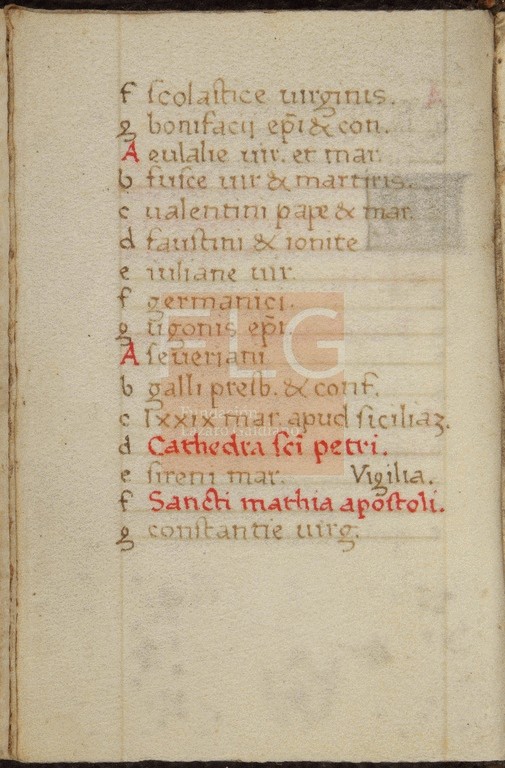 f scolastice uirginis.
g bonifacij ep̄i & con.
A eulalie uir. et mar.
b fusce uir & martiris.
c ualentini pape & mar.
d faustini & ionite
e iuliane uir.
f germanici.
g ugonis ep̄i.
A seueriani
b galli presb. & conf.
c lxxix mar. apud siciliaz.
d Cathedra sc̄i petri.
e sireni mar. Vigilia.
f Sancti mathia apostoli.
g constantie uirg.
FLG
Fundación
Lázaro Galdiano